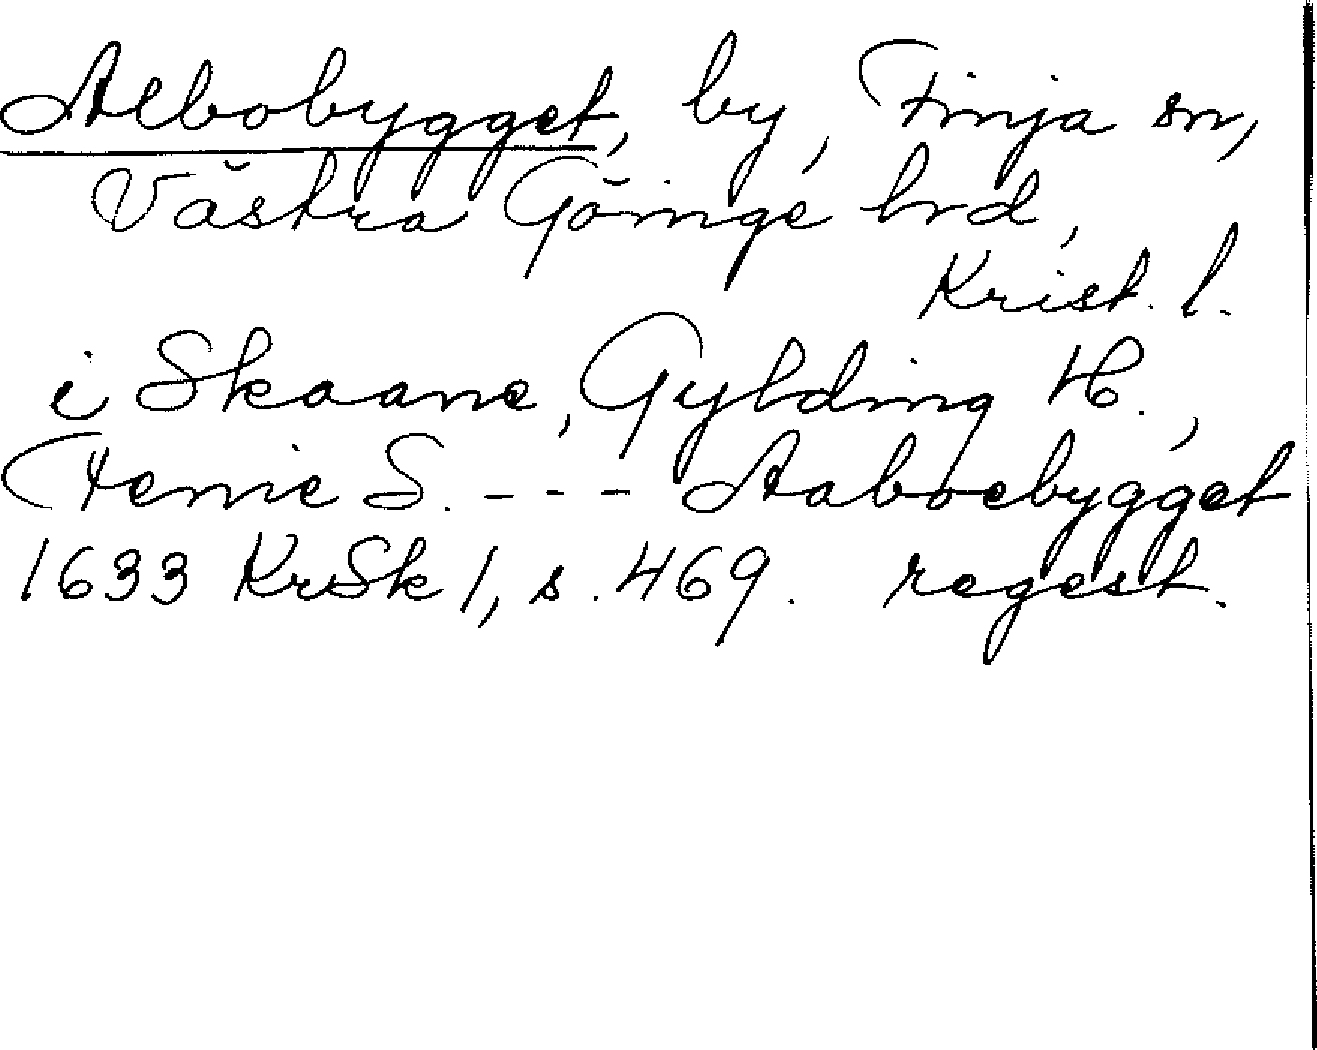 Albobygget, by, Finja sn,
Västra Göinge hrd,
Krist. l.
i Skaane, Gylding H.,
Fenie S. - - - Aaboebygget
1633 KrSk 1, s. 469. regest.